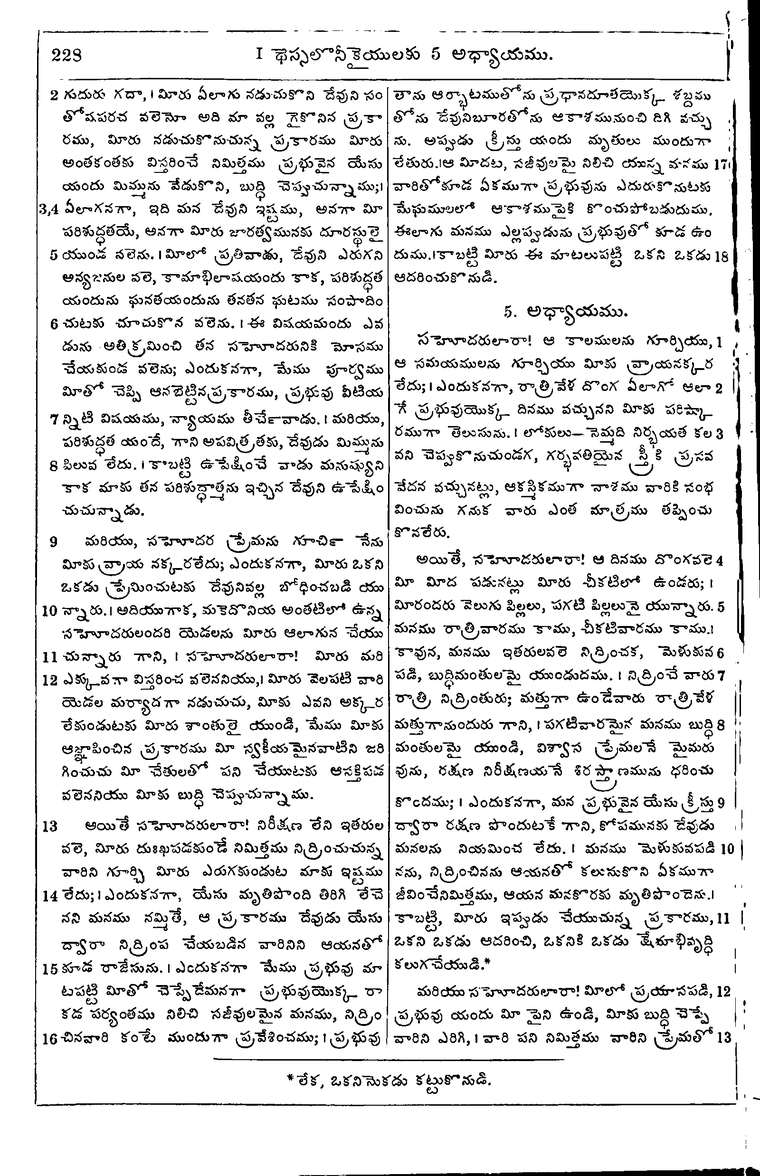 228
I థెస్సలొనీకైయులకు 5 అధ్యాయము.
2 గుదురు గదా, । మీరు ఏలాగు నడుచుకొని దేవుని సం
తోషపరచ వలెనో అది మా వల్ల గైకొనిన ప్రకా
రము, మీరు నడుచుకొనుచున్న ప్రకారము మీరు
అంతకంతకు విస్తరించే నిమిత్తము ప్రభువైన యేసు
యందు మిమ్మును వేడుకొని, బుద్ధి చెప్పుచున్నాము; ।
3,4 ఏలాగనగా, ఇది మన దేవుని ఇష్టము, అనగా మీ
పరిశుద్ధతయే, అనగా మీరు జారత్వమునకు దూరస్థులై
5 యుండ వలెను. । మీలో ప్రతివాడు, దేవుని ఎరుగని
అన్యజనుల వలె, కామాభిలాషయందు కాక, పరిశుద్ధత
యందును ఘనతయందును తనతన ఘటము సంపాదిం
6 చుటకు చూచుకొన వలెను. । ఈ విషయమందు ఎవ
డును అతిక్రమించి తన సహోదరునికి మోసము
చేయకుండ వలెను; ఎందుకనగా, మేము పూర్వము
మీతో చెప్పి ఆనబెట్టినప్రకారము, ప్రభువు వీటియ
7 న్నిటి విషయము, న్యాయము తీర్చేవాడు. । మరియు,
పరిశుద్ధత యందే, గాని అపవిత్రతకు, దేవుడు మిమ్మును
8 పిలువ లేదు. । కాబట్టి ఉపేక్షించే వాడు మనుష్యుని
కాక మాకు తన పరిశుద్ధాత్మను ఇచ్చిన దేవుని ఉపేక్షిం
చుచున్నాడు.
9 మరియు, సహోదర ప్రేమను గూర్చి నేను
మీకు వ్రాయ నక్కరలేదు; ఎందుకనగా, మీరు ఒకని
ఒకడు ప్రేమించుటకు దేవునివల్ల బోధించబడి యు
10 న్నారు. । అదియుగాక, మకెదొనియ అంతటిలో ఉన్న
సహోదరులందరి యెడలను మీరు ఆలాగున చేయు
11 చున్నారు గాని, । సహోదరులారా! మీరు మరి
12 ఎక్కువగా విస్తరించ వలెననియు, । మీరు వెలపటి వారి
యెడల మర్యాదగా నడుచుచు, మీకు ఎవని అక్కర
లేకుండుటకు మీరు శాంతులై యుండి, మేము మీకు
ఆజ్ఞాపించిన ప్రకారము మీ స్వకీయమైనవాటిని జరి
గించుచు మీ చేతులతో పని చేయుటకు ఆసక్తిపడ
వలెననియు మీకు బుద్ధి చెప్పుచున్నాము.
13 అయితే సహోదరులారా! నిరీక్షణ లేని ఇతరుల
వలె, మీరు దుఃఖపడకుండే నిమిత్తము నిద్రించుచున్న
వారిని గూర్చి మీరు ఎరుగకుండుట మాకు ఇష్టము
14 లేదు; । ఎందుకనగా, యేసు మృతిపొంది తిరిగి లేచె
నని మనము నమ్మితే, ఆ ప్రకారము దేవుడు యేసు
ద్వారా నిద్రింప చేయబడిన వారినిని ఆయనతో
15 కూడ రాజేసును. । ఎందుకనగా మేము ప్రభువు మా
టపట్టి మీతో చెప్పేదేమనగా ప్రభువుయొక్క రా
కడ పర్యంతము నిలిచి సజీవులమైన మనము, నిద్రిం
16 చినవారి కంటే ముందుగా ప్రవేశించము; । ప్రభువు
తాను ఆర్భాటముతోను ప్రధానదూతయొక్క శబ్దము
తోను దేవునిబూరతోను ఆకాశమునుంచి దిగి వచ్చు
ను. అప్పుడు క్రీస్తు యందు మృతులు ముందుగా
లేతురు. । ఆ మీదట, సజీవులమై నిలిచి యున్న మనము 17
వారితోకూడ ఏకముగా ప్రభువును ఎదురుకొనుటకు
మేఘములలో ఆకాశముపైకి కొంచుపోబడుదుము.
ఈలాగు మనము ఎల్లప్పుడును ప్రభువుతో కూడ ఉం
దుము. । కాబట్టి మీరు ఈ మాటలుపట్టి ఒకని ఒకడు 18
ఆదరించుకొనుడి.
5. అధ్యాయము.
సహోదరులారా! ఆ కాలములను గూర్చియు, 1
ఆ సమయములను గూర్చియు మీకు వ్రాయనక్కర
లేదు; । ఎందుకనగా, రాత్రివేళ దొంగ ఏలాగో ఆలా 2
గే ప్రభువుయొక్క దినము వచ్చునని మీకు పరిష్కా
రముగా తెలుసును. । లోకులు— నెమ్మది నిర్భయత కల 3
వని చెప్పుకొనుచుండగ, గర్భవతియైన స్త్రీకి ప్రసవ
వేదన వచ్చునట్లు, ఆకస్మికముగా నాశము వారికి సంభ
వించును గనుక వారు ఎంత మాత్రము తప్పించు
కొనలేరు.
అయితే, సహోదరులారా! ఆ దినము దొంగవలె 4
మీ మీద పడునట్లు మీరు చీకటిలో ఉండరు; ।
మీరందరు వెలుగు పిల్లలు, పగటి పిల్లలునై యున్నారు. 5
మనము రాత్రివారము కాము, చీకటివారము కాము. ।
కావున, మనము ఇతరులవలె నిద్రించక, మెళుకువ 6
పడి, బుద్ధిమంతులమై యుండుదము. । నిద్రించే వారు 7
రాత్రి నిద్రింతురు; మత్తుగా ఉండేవారు రాత్రివేళ
మత్తుగానుందురు గాని, । పగటివారమైన మనము బుద్ధి 8
మంతులమై యుండి, విశ్వాస ప్రేమలనే మైమరు
వును, రక్షణ నిరీక్షణయనే శిరస్త్రాణమును ధరించు
కొందము; । ఎందుకనగా, మన ప్రభువైన యేసు క్రీస్తు 9
ద్వారా రక్షణ పొందుటకే గాని, కోపమునకు దేవుడు
మనలను నియమించ లేదు. । మనము మెళుకువపడి 10
నను, నిద్రించినను ఆయనతో కలుసుకొని ఏకముగా
జీవించేనిమిత్తము, ఆయన మనకొరకు మృతిపొందెను. ।
కాబట్టి, మీరు ఇప్పుడు చేయుచున్న ప్రకారము, 11
ఒకని ఒకడు ఆదరించి, ఒకనికి ఒకడు క్షేమాభివృద్ధి
కలుగచేయుడి.*
మరియు సహోదరులారా! మీలో ప్రయాసపడి, 12
ప్రభువు యందు మీ పైని ఉండి, మీకు బుద్ధి చెప్పే
వారిని ఎరిగి, । వారి పని నిమిత్తము వారిని ప్రేమతో 13
* లేక, ఒకనినొకడు కట్టుకొనుడి.